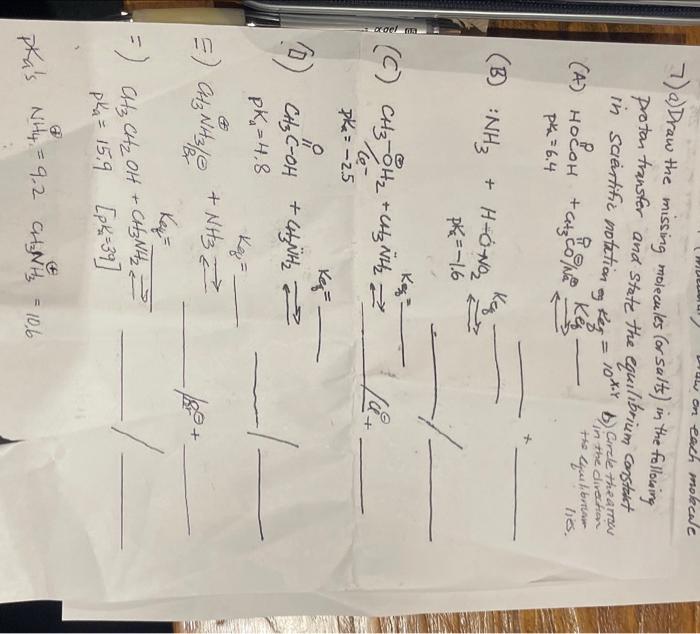 on each molecule
7) a) Draw the missing molecules (or salts) in the following
proton transfer and state the equilibrium constant
in scientific notation eg Keq = 10^x.x
b) Circle the arrow
in the direction
the equilibrium
lies.
(A) HOCOH + CH3CO⊖/Na⊕ ⇌ Keq ___ ___ + ___
O O
pKa = 6.4
(B) :NH3 + H-O-NO2 ⇌ Keq ___ ___ / ___
pKa = -1.6
(C) CH3-OH2⊕/Cl⁻ + CH3NH2 ⇌ Keq = ___ ___ /Cl⊖ + ___
pKa = -2.5
(D) CH3C-OH + CH3NH2 ⇌ Keq = ___ ___ / ___
O
pKa = 4.8
E) CH3NH3⊕/Br⊖ + NH3 ⇌ Keq = ___ ___ /Br⊖ + ___
=) CH3CH2OH + CH3NH2 ⇌ Keq = ___ ___ / ___
pKa = 15.9 [pK=39]
pKa's NH4⊕ = 9.2 CH3NH3⊕ = 10.6